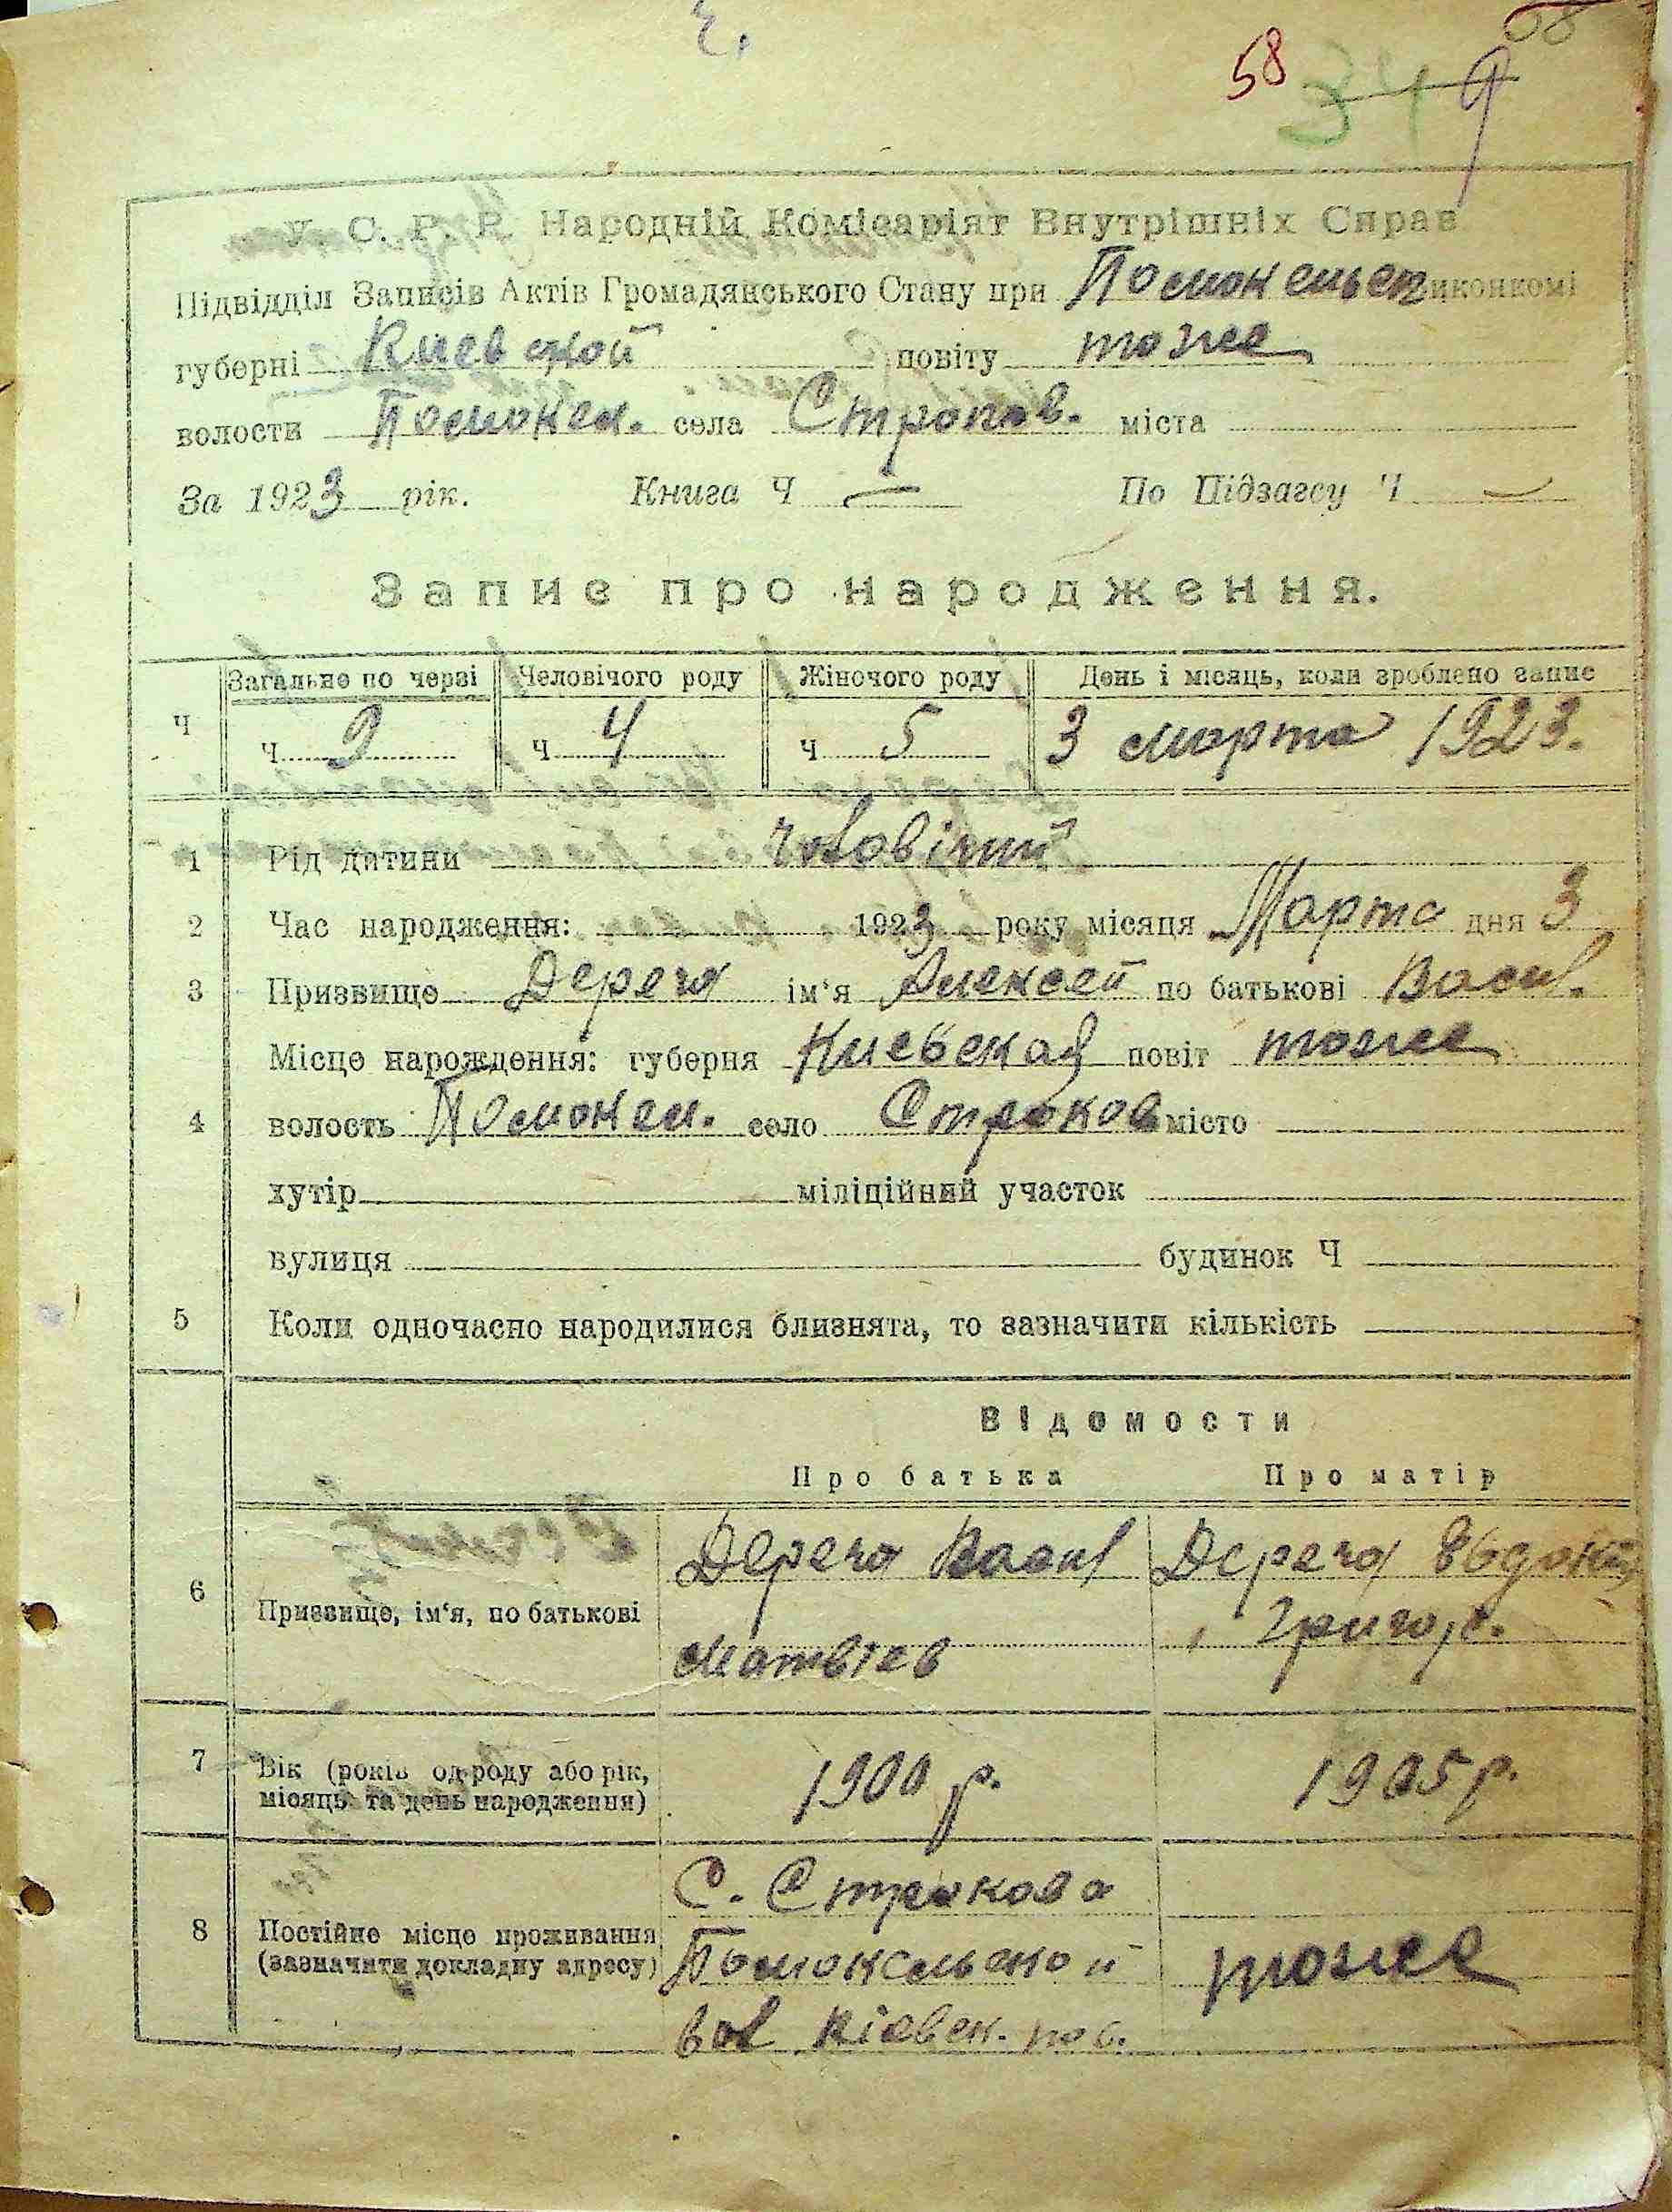 58
58 34 9
У. С. Р. Р. Народній Комісаріят Внутрішніх Справ
Підвідділ Записів Актів Громадянського Стану при виконкомі
губерні Киевской повіту тоже
волости села міста
За 1923 рік. Книга Ч — По Підзагсу Ч —
Запис про народження.
Загальне по черзі Человічого роду Жіночого роду День і місяць, коли зроблено запис
Ч Ч 9 Ч 4 Ч 5 3 марта 1923.
1 Рід дитини чоловічий
2 Час народження: 1923 року місяця Марта дня 3
3 Призвище Дереча ім‘я Алексей по батькові Васил.
Місце народження: губерня Киевская повіт тоже
4 волость село Строков місто
хутір міліційний участок
вулиця будинок Ч
5 Коли одночасно народилися близнята, то зазначити кількість
Відомости
Про батька Про матір
Дереча Васил Дереча Евдокия
6 Призвище, ім‘я, по батькові Григор.
Матвіев
7 Вік (років од роду або рік, 1900 р. 1905 р.
місяць та день народження)
С. Строкова
8 Постійне місце проживання
(зазначити докладну адресу) тоже
вол Кіевск. пов.